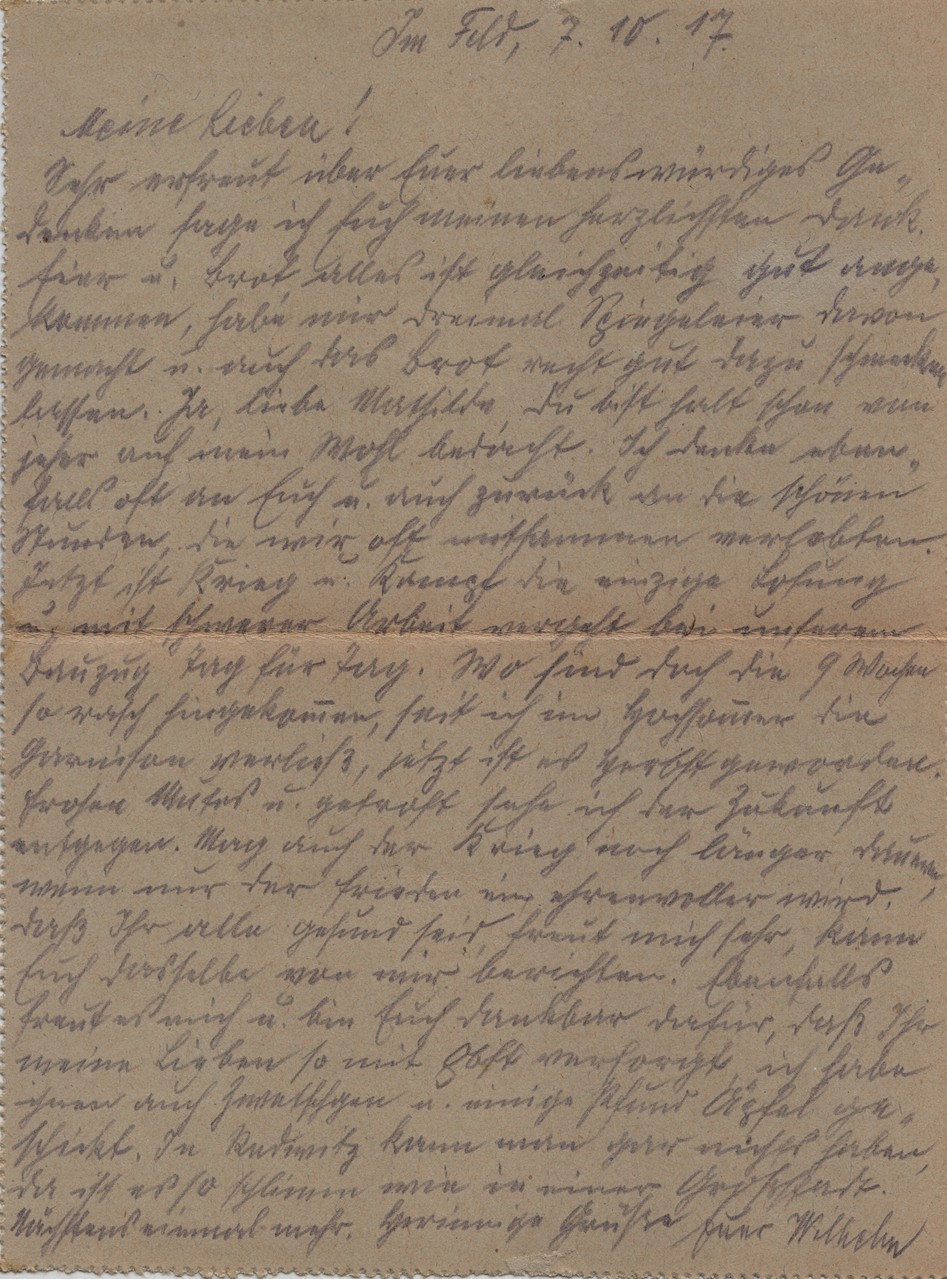 Im Feld, 7. 10. 17.
Meine Lieben!
Sehr erfreut über Euer liebenswürdiges Ge„
denken sage ich Euch meinen herzlichsten Dank.
Eier u. Brot alles ist gleichzeitig gut ange„
kommen, habe mir dreimal Spiegeleier davon
gemacht u. auch das Brot recht gut dazu schmecken
lassen. Ja, liebe Mathilde du bist halt schon von
jeher auf mein Wohl bedacht. Ich denke eben„
falls oft an Euch u. auch zurück an die schönen
Stunden, die wir oft mitsammen verlebten.
Jetzt ist Krieg u. Kampf die einzige Losung
u. mit schwerer Arbeit vergeht bei unserem
Bauzug Tag für Tag. Wo sind doch die 9 Wochen
so rasch hingekommen, seit ich im Hochsommer die
Garnison verließ, jetzt ist es Herbst geworden.
Frohen Mutes u. getrost sehe ich der Zukunft
entgegen. Mag auch der Krieg noch länger dauern,
wenn nur der Frieden ein ehrenvoller wird.
Daß Ihr alle gesund seid, freut mich sehr, kann
Euch dasselbe von mir berichten. Ebenfalls
freut es mich u. bin Euch dankbar dafür, daß Ihr
meine Lieben so mit Obst versorgt, ich habe
ihnen auch Zwetschgen u. einige Pfund Äpfel ge„
schickt. In Redwitz kann man gar nichts haben,
da ist es so schlimm wie in einer Großstadt.
Nächstens einmal mehr. Herinnige Grüße Euer Wilhelm